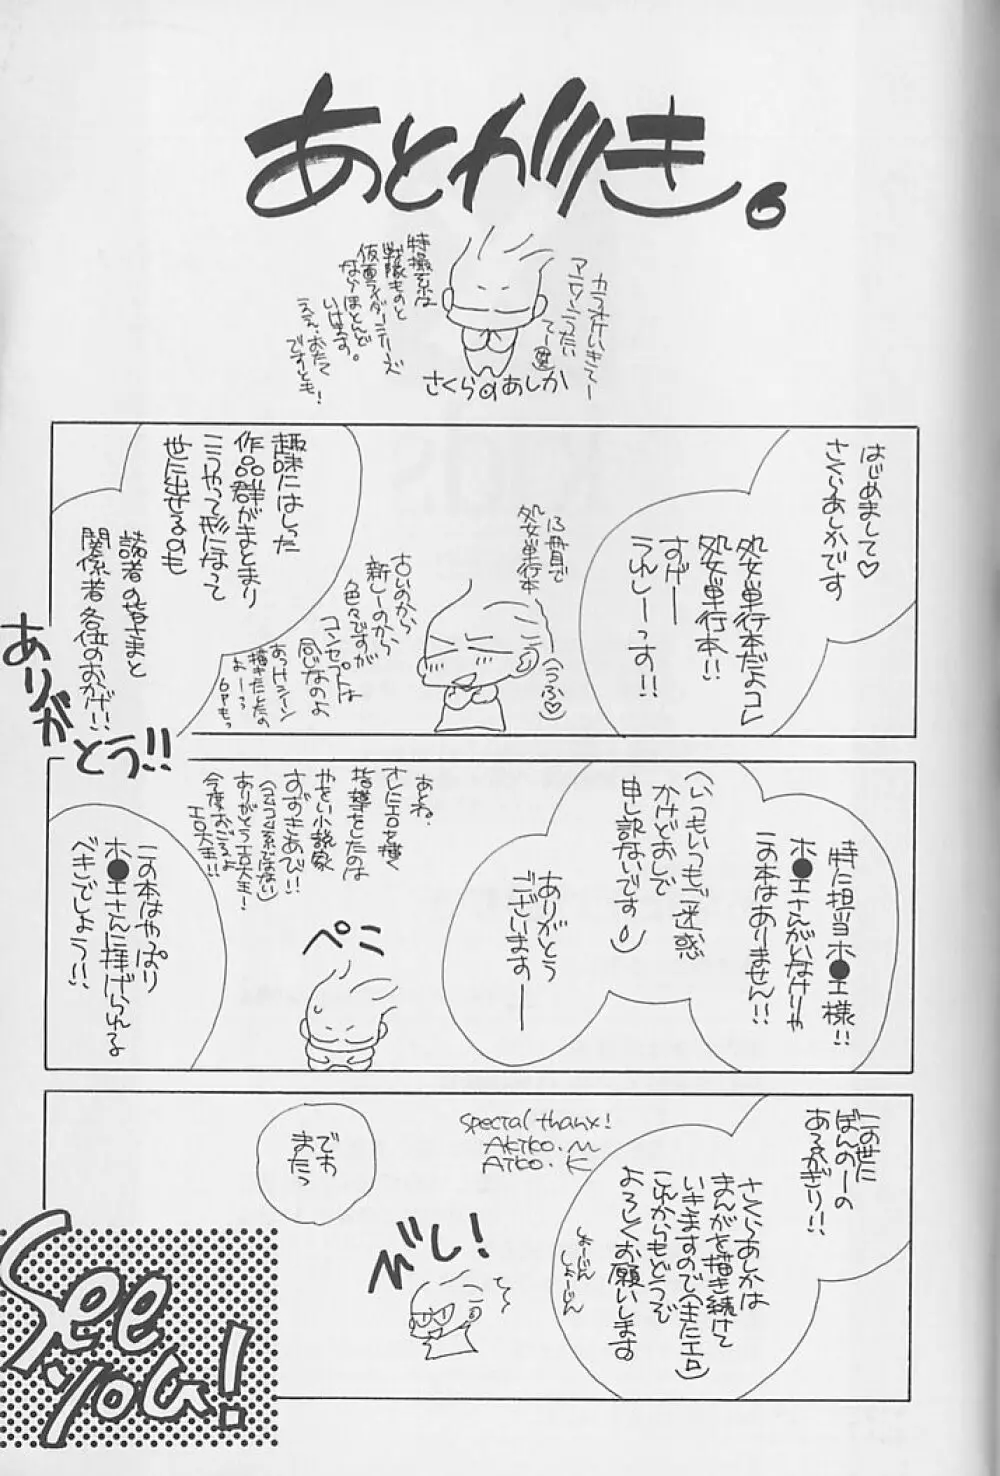 あとがき。
カラオケいきてー
アニソンうたい
てー
特撮系は
戦隊ものと
仮面ライダーシリーズ
ならほとんど
いけます。
ええ、おたく
ですとも！
さくらのあしか
はじめまして♡
さくらあしかです
処女単行本だよコレ
処女単行本！！
すげー
うれしーっす！！
13冊目で
処女単行本
(うふ♡)
古いのから
新しーのから
色々ですが
コンセプトは
同じなのよ
あっHシーン
描きたとたの
よーっ
趣味にはしった
作品群がまとまり
こうやって形になって
世に出せるのも
読者の皆さまと
関係者各位のおかげ！！
ありが
とう！！
特に担当ホ●エ様！！
ホ●エさんがいなけりゃ
この本はありません！！
(いつもいつもご迷惑
かけどおしで
申し訳ないです)
ありがとう
ございますー
あとね、
さらにエロを描く
指導をしたのは
やおい小説家
すずきあび！！
ありがとうエロ大王！
今度おごるよ
エロ大王！！
ペこ
この本はやっぱり
ホ●エさんに捧げられる
べきでしょう！！
この世に
ぼんのーの
あるかぎり！！
さくらあしかは
まんがを描き続けて
いきますので(またエロ)
これからもどうぞ
よろしくお願いします
しょーじん
しょーじん
Special thanx!
AKIKO.M
AIKO.K
ビし！
でわ
またっ
See
you!